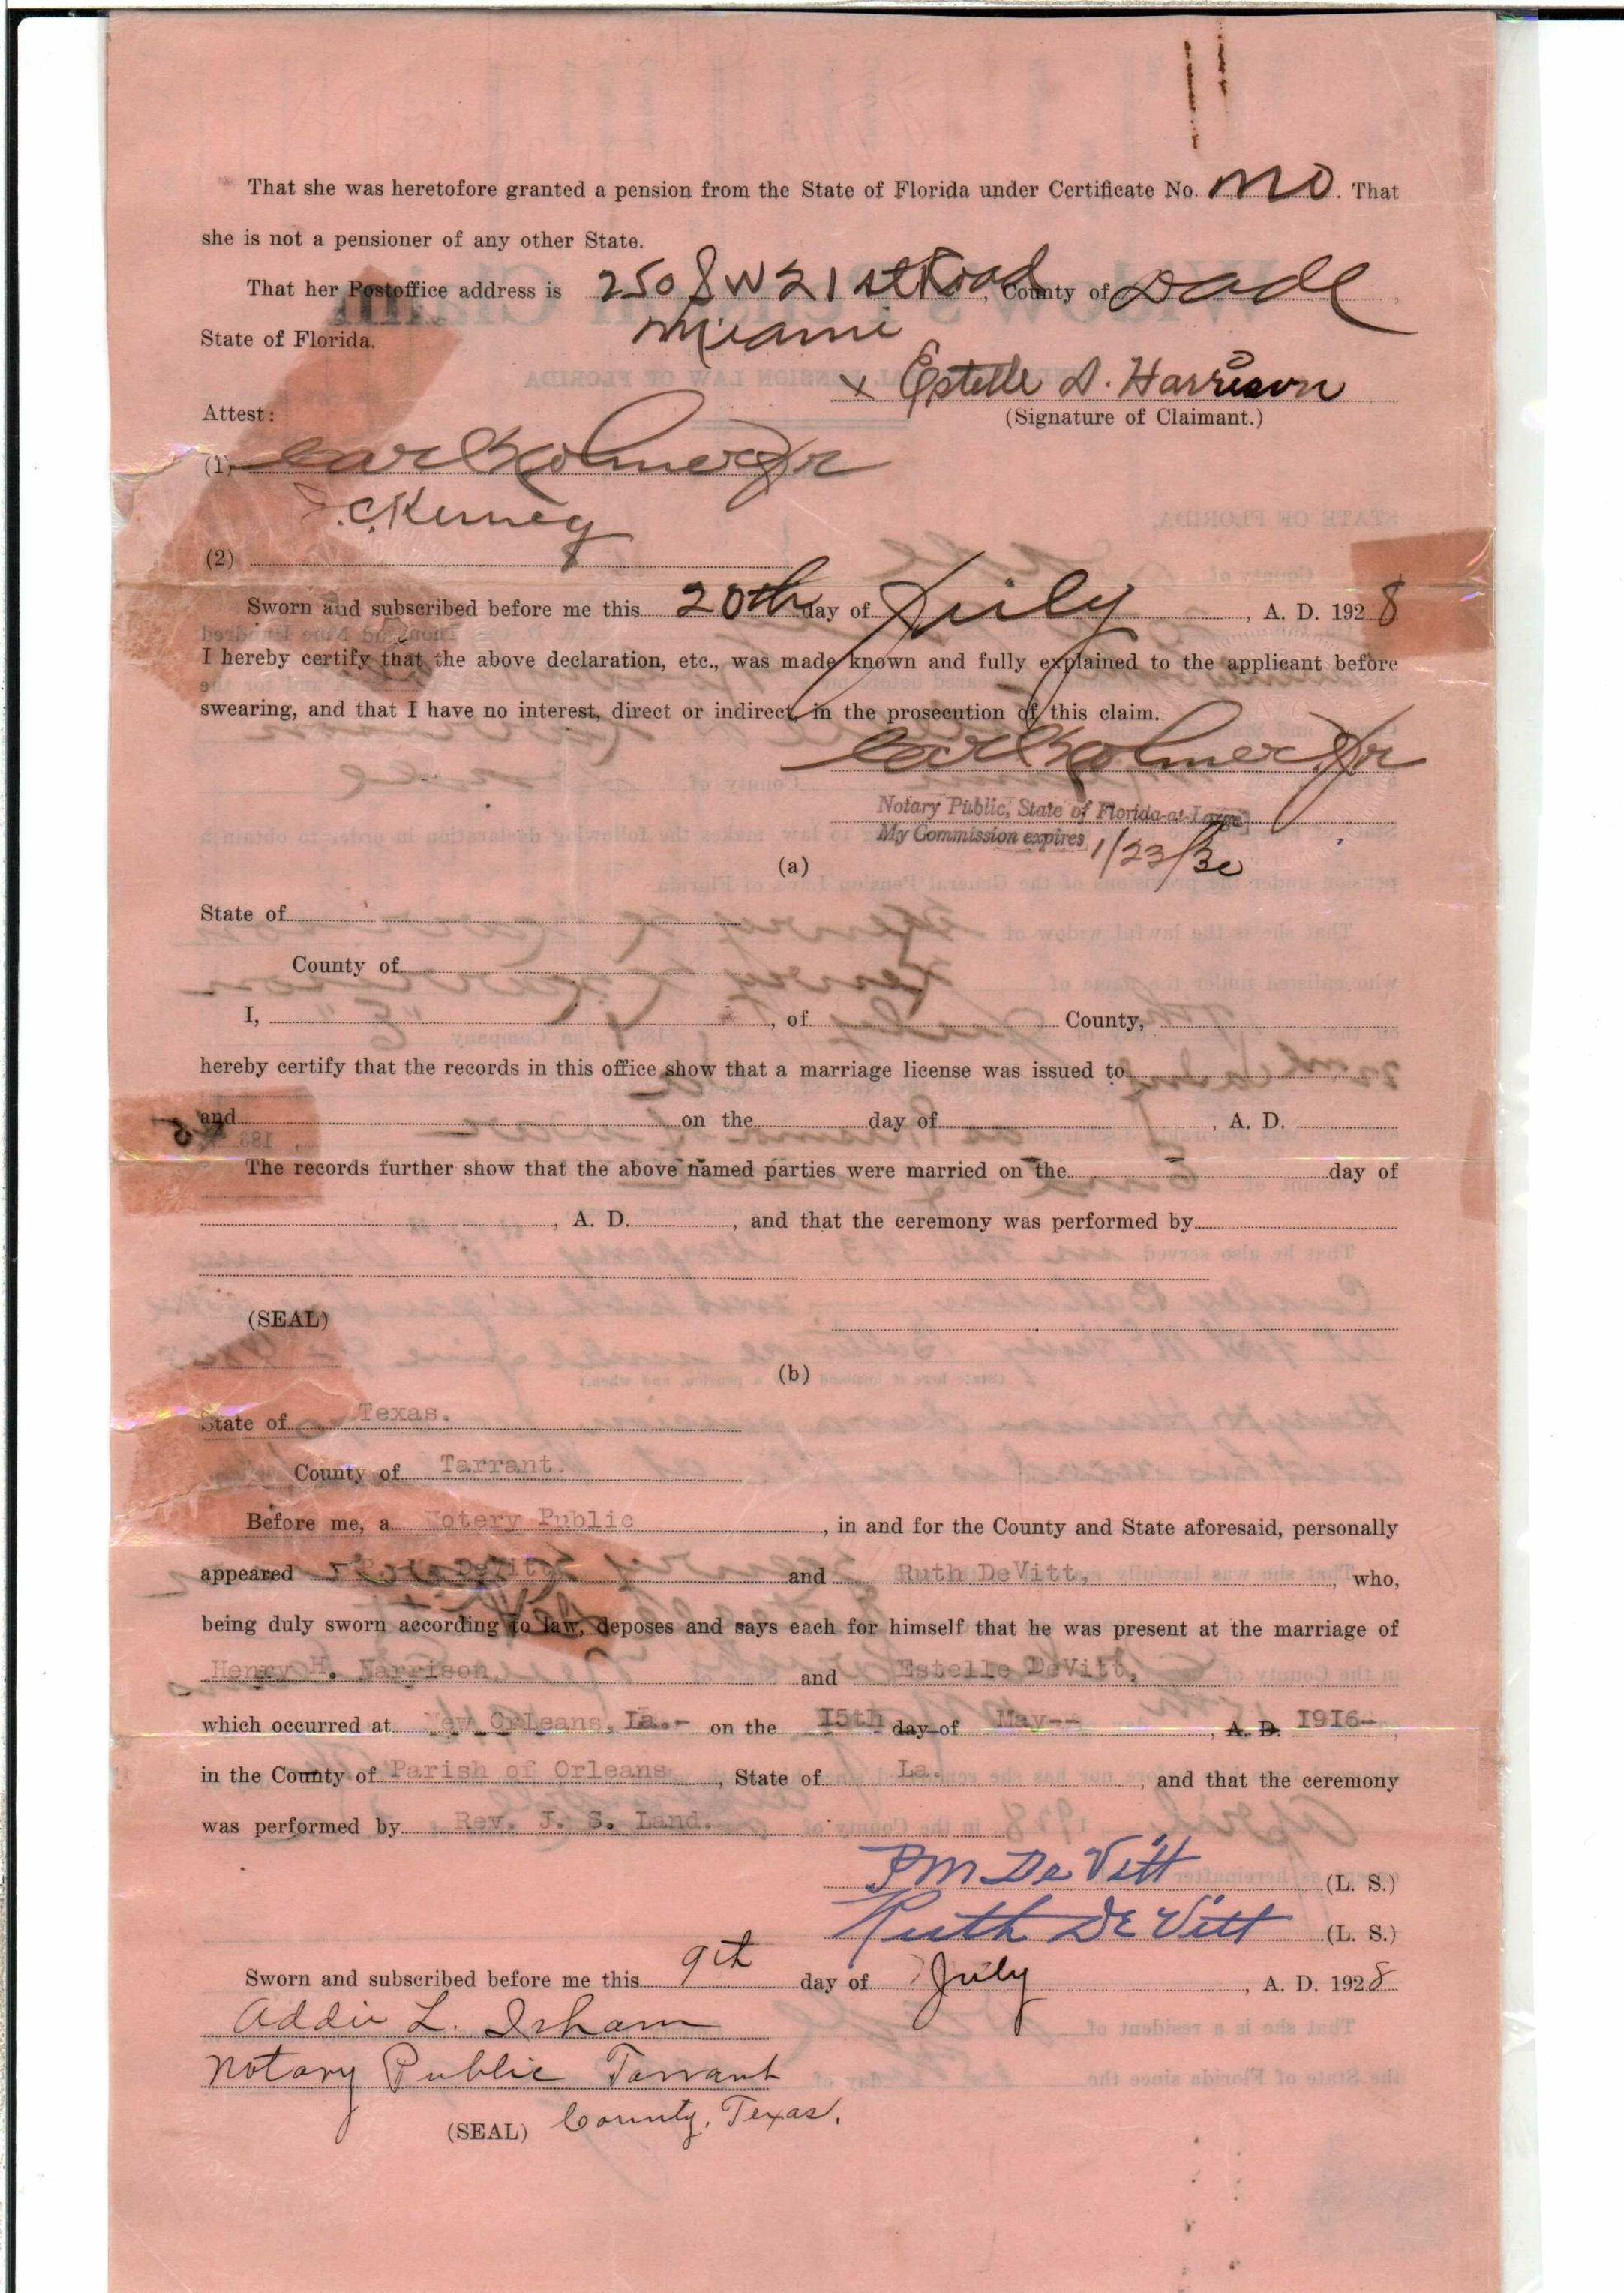 That she was heretofore granted a pension from the State of Florida under Certificate No. no. That
she is not a pensioner of any other State.
That her Postoffice address is 250 SW 21 st Road, County of Dade
Miami
State of Florida.
x Estelle D. Harrison
Attest:
(Signature of Claimant.)
(1)
Kerney
(2)
Sworn and subscribed before me this 20th day of July, A. D. 1928
I hereby certify that the above declaration, etc., was made known and fully explained to the applicant before
swearing, and that I have no interest, direct or indirect, in the prosecution of this claim.
Notary Public, State of Florida at Large
My Commission expires 1/23/30
(a)
State of
County of
I, , of County,
hereby certify that the records in this office show that a marriage license was issued to
and on the day of , A. D.
The records further show that the above named parties were married on the day of
, A. D. , and that the ceremony was performed by
(SEAL)
(b)
State of Texas.
County of Tarrant.
Before me, a Notery Public, in and for the County and State aforesaid, personally
appeared and Ruth DeVitt, who,
being duly sworn according to law, deposes and says each for himself that he was present at the marriage of
Henry H. Harrison and Estelle DeVitt,
which occurred at New Orleans, La.- on the 15th day of May--, A. D. 1916-
in the County of Parish of Orleans, State of La., and that the ceremony
was performed by Rev. J. S. Land.
PM De Vitt (L. S.)
Ruth De Vitt (L. S.)
Sworn and subscribed before me this 9th day of July, A. D. 1928
Addie L. Isham
Notary Public Tarrant
(SEAL) County, Texas.